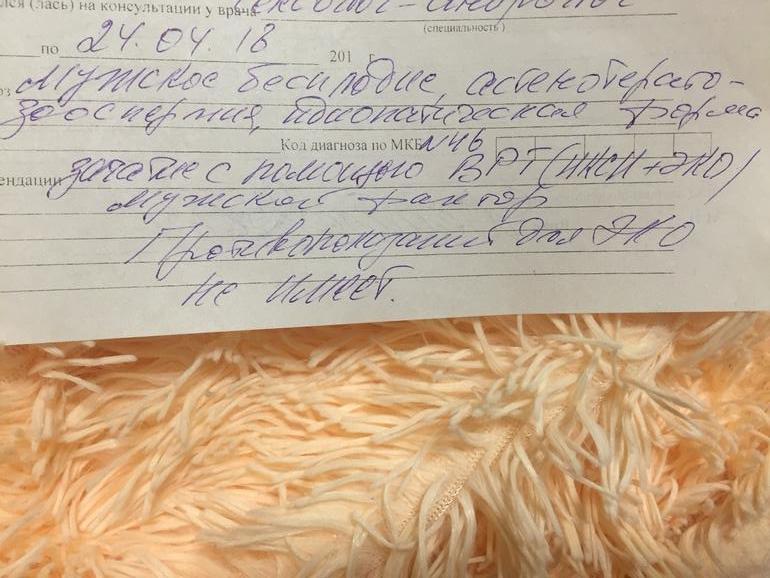 лся (лась) на консультации у врача сексолог-андролог
(специальность)
по 24.04.18 201 г.
оз Мужское бесплодие, астенотерато-
зооспермия, идиопатическая форма
Код диагноза по МКБ N46
ендации зачатие с помощью ВРТ (ИКСИ+ЭКО)
Мужской фактор
Противопоказаний для ЭКО
не имеет.